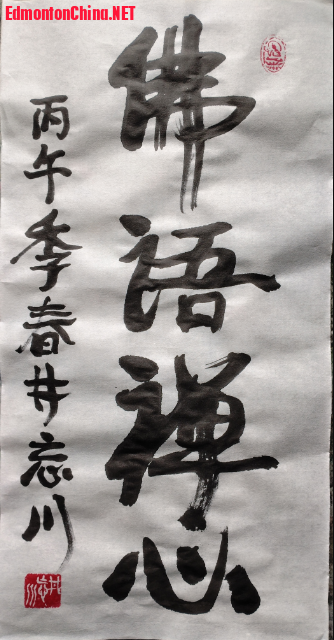 EdmontonChina.NET
佛语禅心
丙午季春井忘川